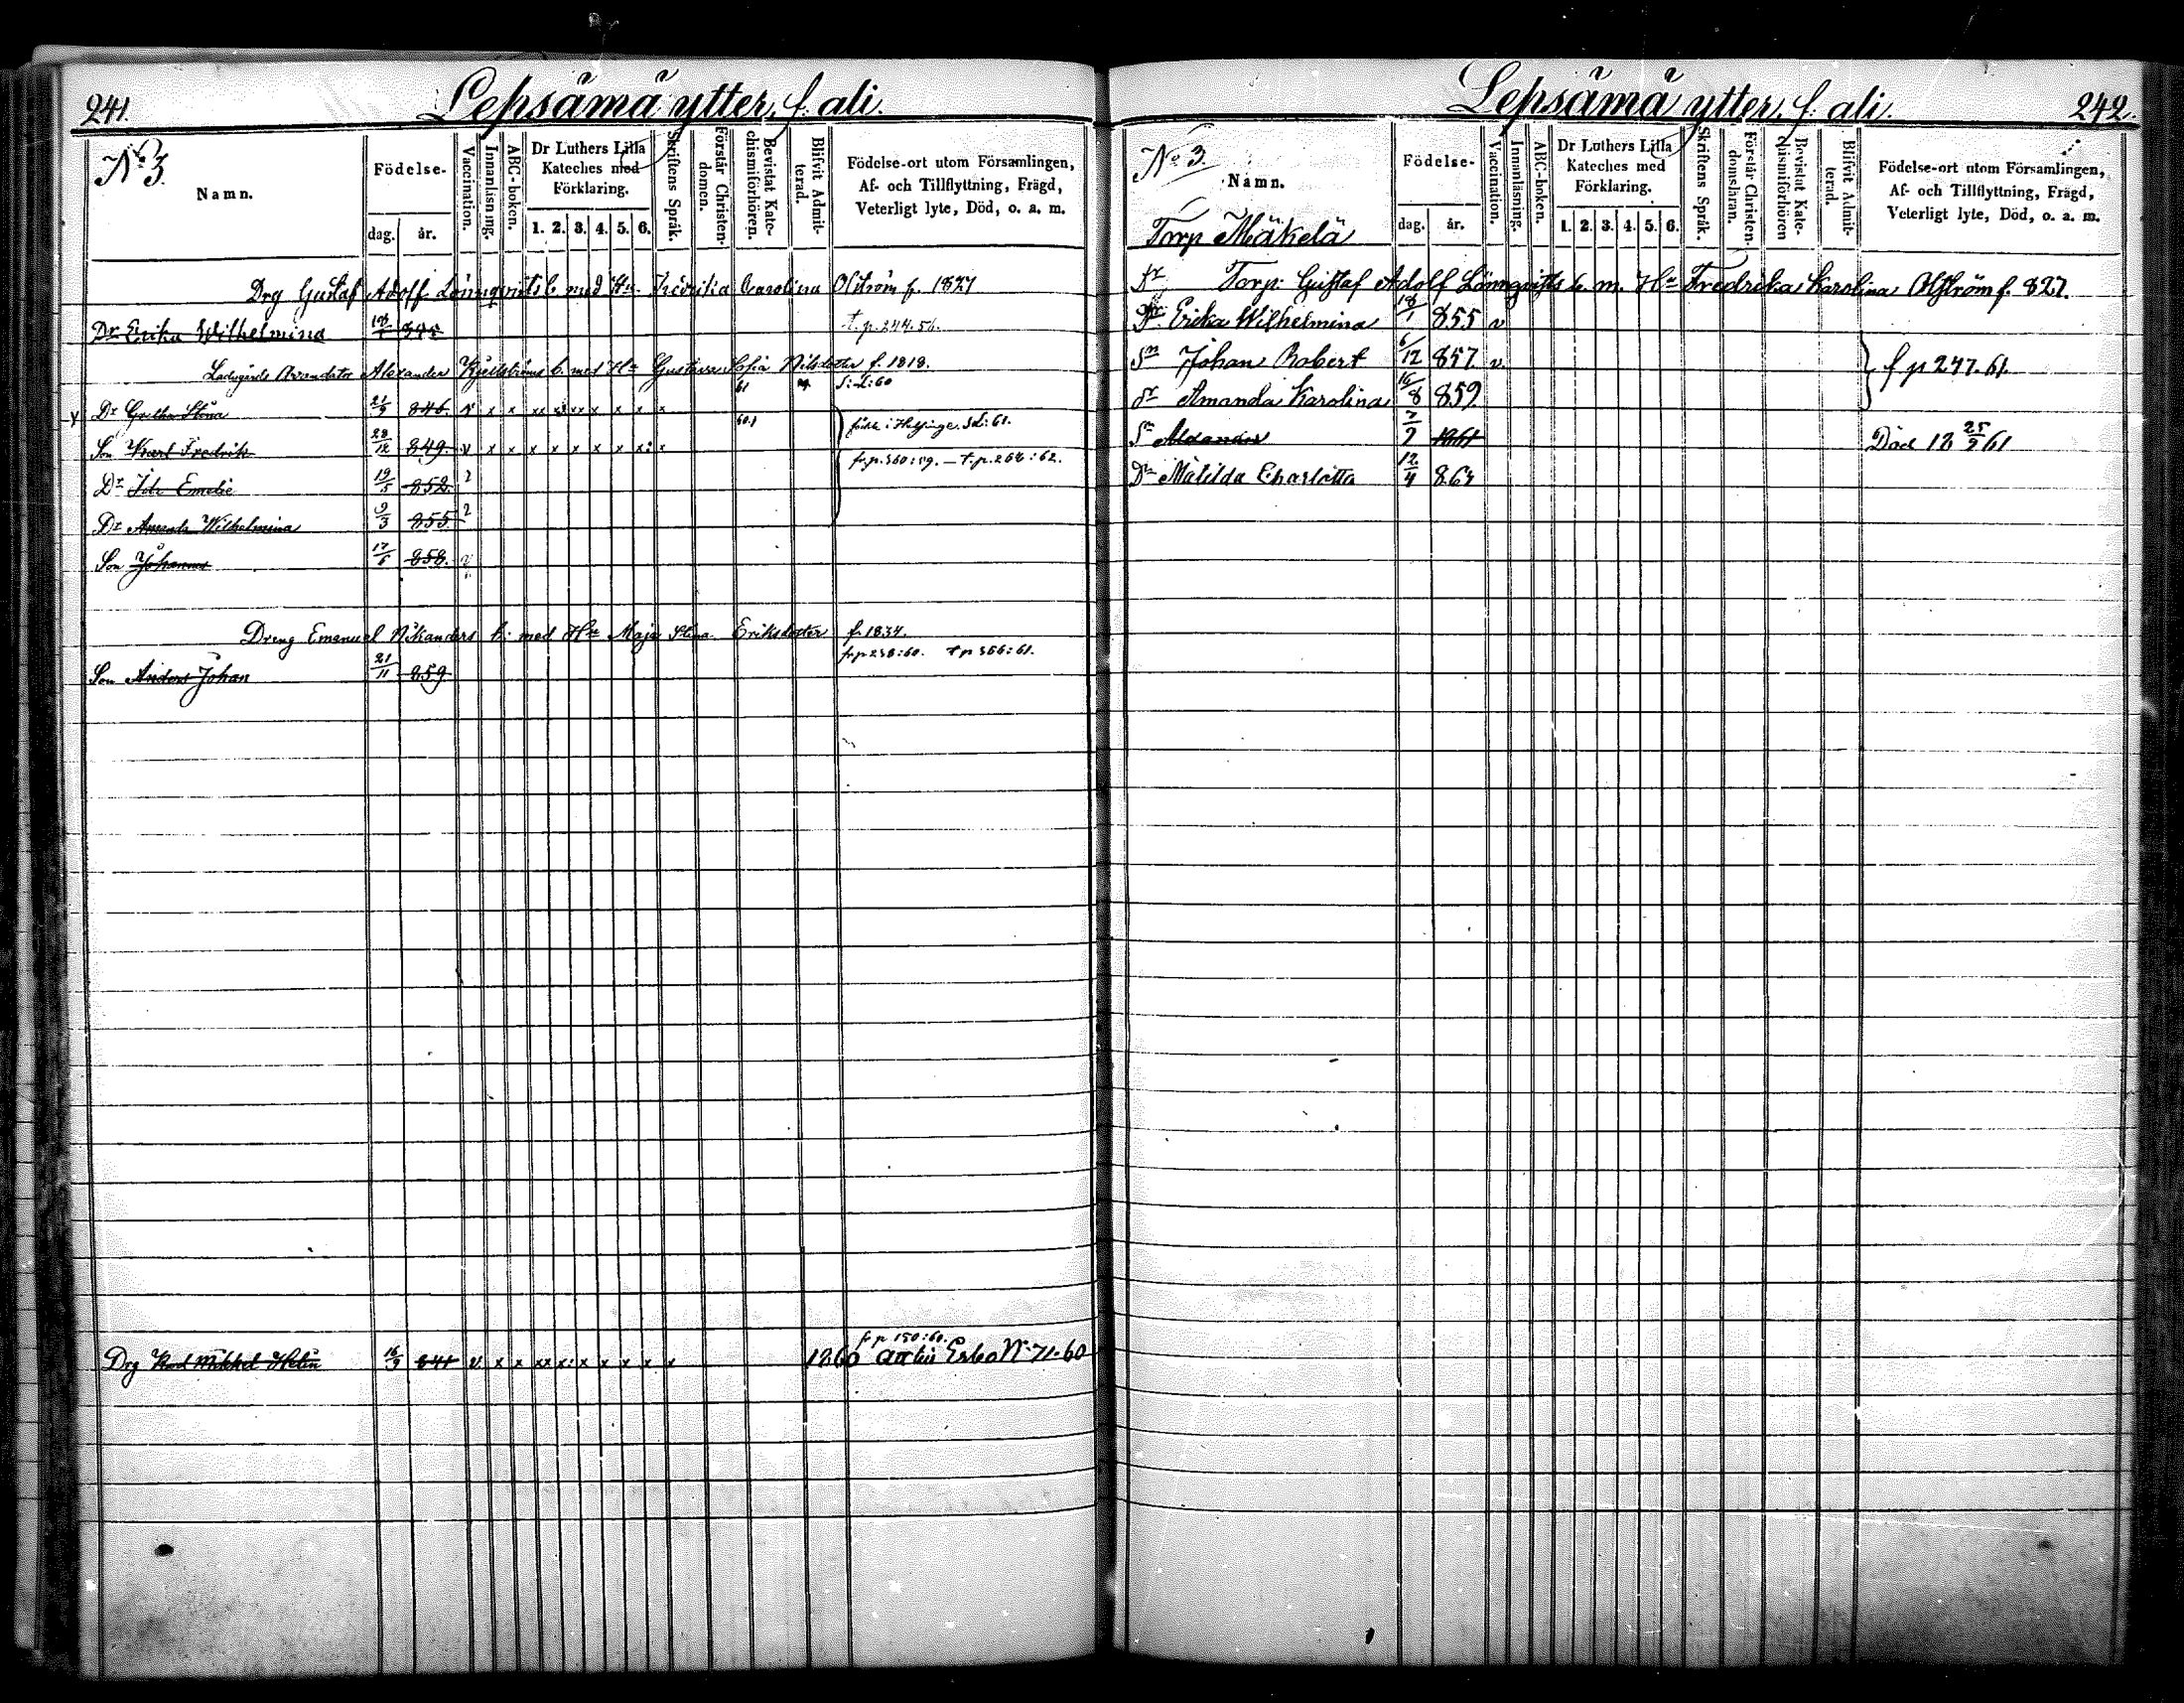 241. Lepsämä ytter. f. ali.
No 3.
Namn.
Födelse-
dag. år.
Vaccination.
Innanläsning.
ABC-boken.
Dr Luthers Lilla Kateches med Förklaring.
1. 2. 3. 4. 5. 6.
Skriftens Språk.
Förstår Christendomen.
Bevistat Katechismiförhören.
Blifvit Admitterad.
Födelse-ort utom Församlingen,
Af- och Tillflyttning, Frägd,
Veterligt lyte, Död, o. a. m.
Drg Gustaf Adolf Lönnqvists b. med Hu. Fredrika Carolina f. 1827
Dr Erika Wilhelmina t. p. 244. 56.
Alexander b. med Hu Gustava Sofia Nilsdotter f. 1818.
61 S: L: 60
Dr Stina 21/9 846. v x x xx x xx x x x x
Son Karl Fredrik 28/12 849. v x x x x x x x x x född i Helsinge. Sd: 61.
fr. p. 360: 59. — t. p. 268: 62.
Dr Ida Emelie 19/5 852.
Dr Amanda Wilhelmina 9/3 855.
Son Johannes 17/5 858.
Dreng Emanuel Nikanders b. med Hu Maja Stina Eriksdotter f. 1834.
fr p 238: 60. t p 366: 61.
Son Anders Johan 21/11 859
fr p 150: 60.
Drg Karl Mikkel Helin 16/9 841 v x x xx x: x x x x x 1860 Esbo No 71. 60
Lepsämä ytter. f. ali. 242.
No 3.
Namn.
Torp Mäkelä
Födelse-
dag. år.
Vaccination.
Innanläsning.
ABC-boken.
Dr Luthers Lilla Kateches med Förklaring.
1. 2. 3. 4. 5. 6.
Skriftens Språk.
Förstår Christendomsläran.
Bevistat Katechismiförhören
Blifvit Admitterad.
Födelse-ort utom Församlingen,
Af- och Tillflyttning, Frägd,
Veterligt lyte, Död, o. a. m.
Torp: Gustaf Adolf Lönnqvists b. m. Hu Fredrika Karolina f. 827.
Dr Erika Wilhelmina 18/1 855 v
Sn Johan Robert 6/12 857. v. f p 247. 61.
Dr Amanda Karolina 16/8 859.
Sn Alexander 7/9 1861 Död 18 25/9 61
Dr Matilda Charlotta 12/4 864